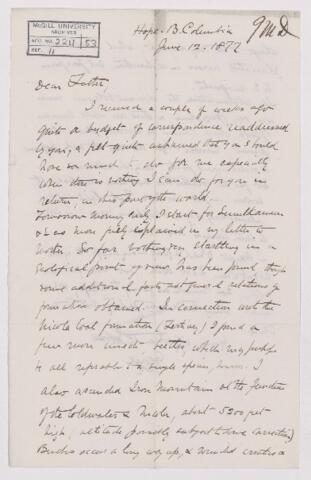 McGILL UNIVERSITY
ARCHIVES
ACC. NO. 2211 / 53
REF. 11
GMD
Hope. B. Columbia
June 12. 1877
Dear Father
I received a couple of weeks ago
quite a budget of correspondence readdressed
by you, & felt quite ashamed that you should
have so much to do for me especially
when there is nothing I can do for you in
return, in this part of the world
Tomorrow morning early I start for Similkameen
& as more fully explained in my letter to
Mother. So far nothing very startling in a
geological point of view has been found, though
some additional facts and general relations of
formation obtained. In connection with the
Nicola Coal formation (Tertiary) I found a
few more insect beetles, which may perhaps
all represent a single species, I
also ascended Iron Mountain at the junction
of the Coldwater & Nicola, about 5200 feet
high, altitude probably subject to some correction)
Birches occur a long way up, & rounded